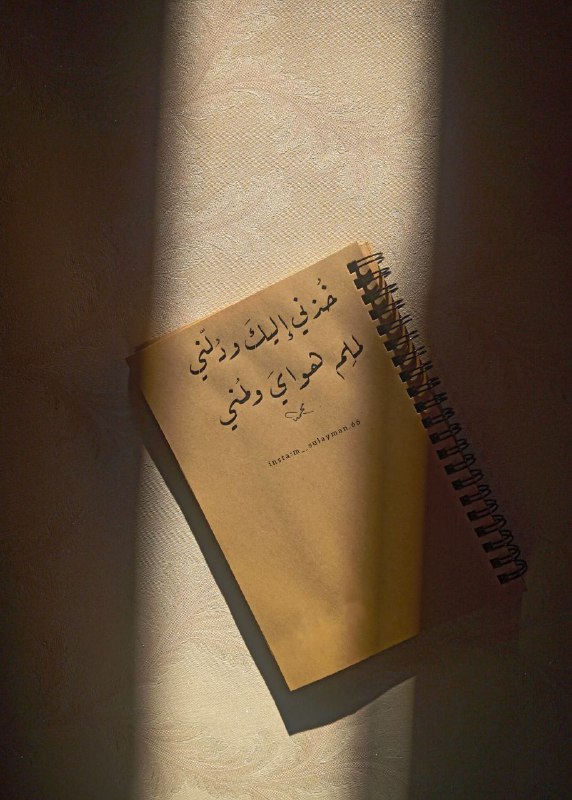 خُذني إليكَ ودُلّني
لملِم هوايَ ولُمني
insta:m_sulayman66